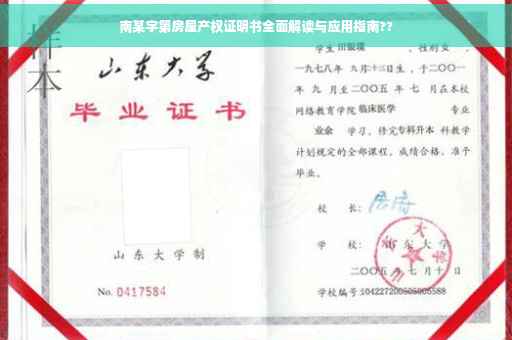 南某字第房屋产权证明书全面解读与应用指南??
样本
山东大学
毕业证书
山东大学制
No. 0417584
学生 田银瑞 , 性别女 ,
一九七八年 九月十三日生, 于二〇〇一
年 九 月至二〇〇五 年 七 月在本校
网络教育学院 临床医学 专业
业余 学习, 修完专科升本 科教学
计划规定的全部课程, 成绩合格, 准予
毕业。
校 长:
学 校: 山东大学
二〇〇五年七月十日
学校编号: